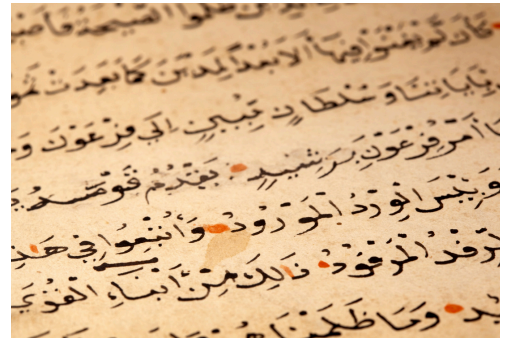 ظَلَمُوا الصَّيْحَةُ
كَأَنْ لَمْ يَغْنَوْا فِيهَا أَلَا بُعْدًا لِمَدْيَنَ كَمَا بَعِدَتْ ثَمُو
بِآيَاتِنَا وَسُلْطَانٍ مُبِينٍ إِلَى فِرْعَوْنَ وَ
أَمْرُ فِرْعَوْنَ بِرَشِيدٍ يَقْدُمُ قَوْمَهُ
وَبِئْسَ الْوِرْدُ الْمَوْرُودُ وَأُتْبِعُوا فِي هَذِ
الرِّفْدُ الْمَرْفُودُ ذَلِكَ مِنْ أَنْبَاءِ الْقُرَى
يدٌ وَمَا ظَلَمْنَا